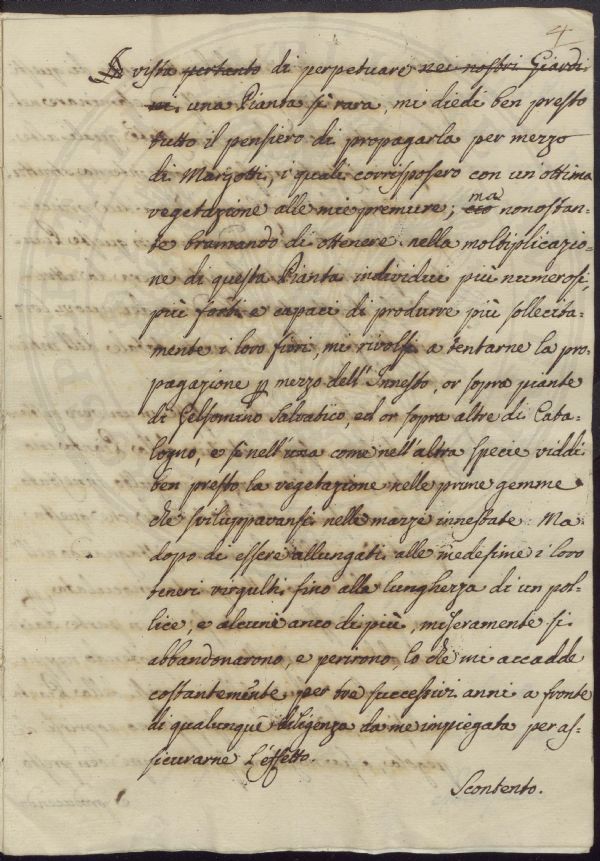 4
In vista pertanto di perpetuare nei nostri Giardi-
ni una Pianta sì rara, mi diedi ben presto
tutto il pensiero di propagarla per mezzo
di Margotti, i quali corrisposero con un'ottima
vegetazione alle mie premure; ciò ma nonostan-
te bramando di ottenere nella moltiplicazio-
ne di questa Pianta individui più numerosi,
più forti e capaci di produrre più sollecita-
mente i loro fiori, mi rivolsi a tentarne la pro-
pagazione p mezzo dell'Innesto, or sopra piante
di Gelsomino Salvatico, ed or sopra altre di Cata-
logno, e sì nell'una come nell'altra specie viddi
ben presto la vegetazione nelle prime gemme
che sviluppavansi nelle marze innestate: Ma
dopo di essere allungati alle medesime i loro
teneri virgulti fino alla lunghezza di un pol-
lice, e alcuni anco di più, miseramente si
abbandonarono, e perirono, lo che mi accadde
costantemte per tre successivi anni a fronte
di qualunque diligenza da me impiegata per as-
sicurarne l'effetto.
Scontento.